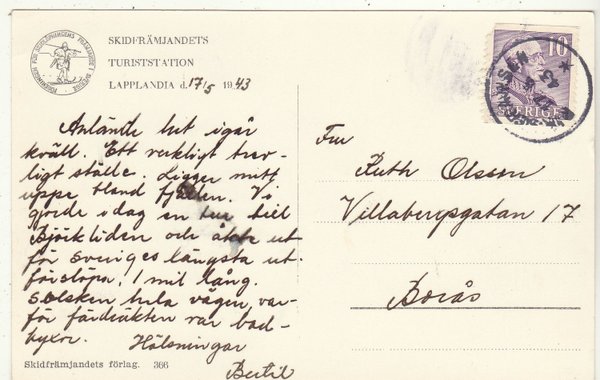 SKIDFRÄMJANDETS
TURISTSTATION
LAPPLANDIA d. 17/5 1943
Anlände hit igår
kväll. Ett verkligt trev-
ligt ställe. Ligger mitt
uppe bland fjällen. Vi
gjorde idag en tur till
Björkliden och åkte ut-
för Sveriges längsta ut-
förslöpa. 1 mil lång.
Solsken hela vägen, var-
för färddräkten var bad-
byxor. Hälsningar
Bertil
Skidfrämjandets förlag. 366
10
SVERIGE
Fru
Ruth Olsson
Villabergsgatan 17
Borås